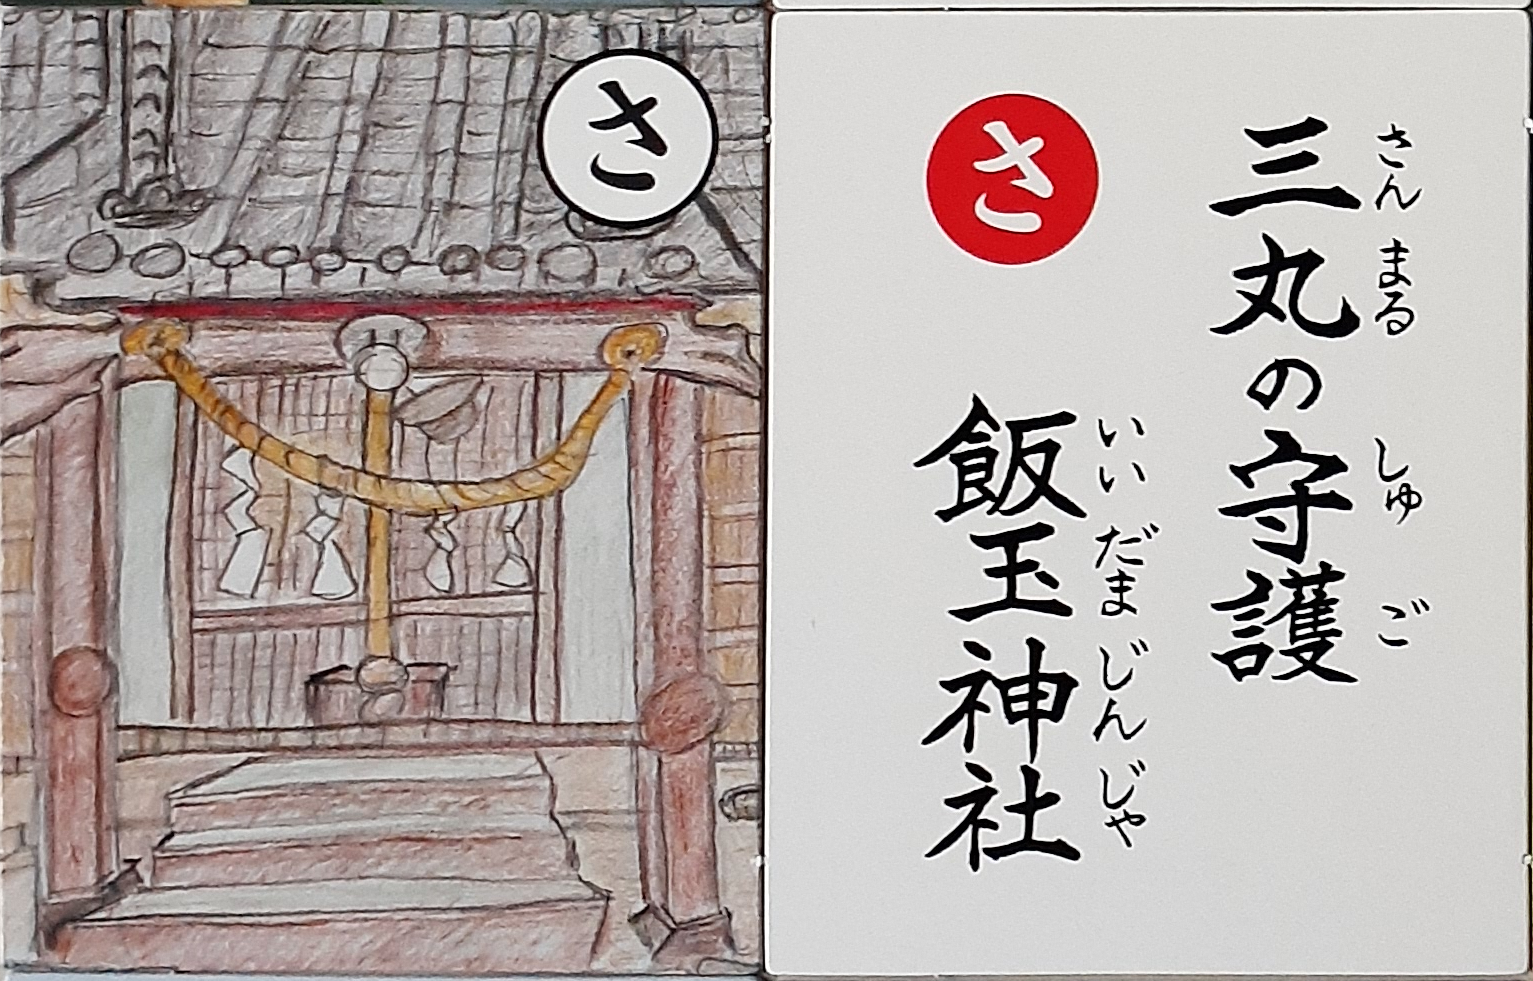 さ
さ
三丸の守護
さんまるしゅご
飯玉神社
いいだまじんじゃ